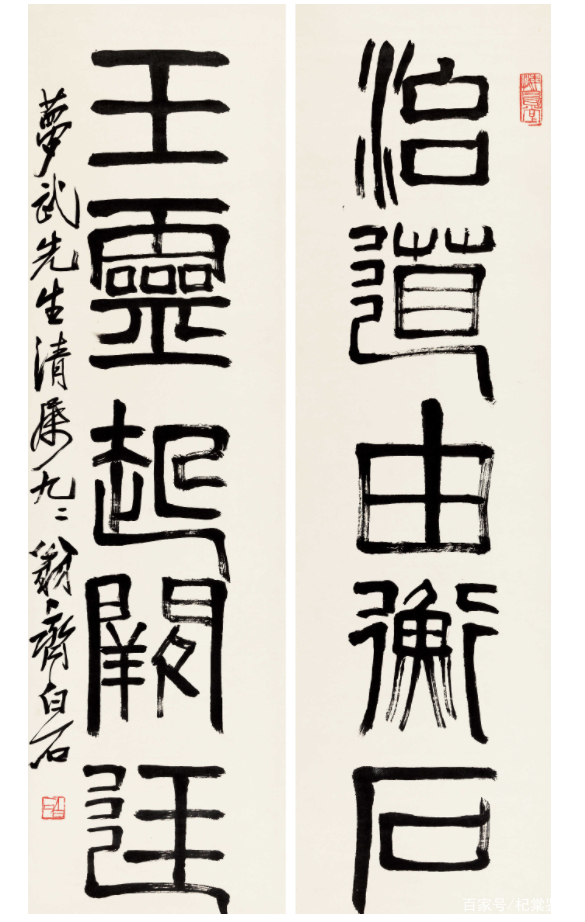 治道由衡石
王靈起闕廷
夢武先生清屬九二翁齊白石
百家号/杞棠